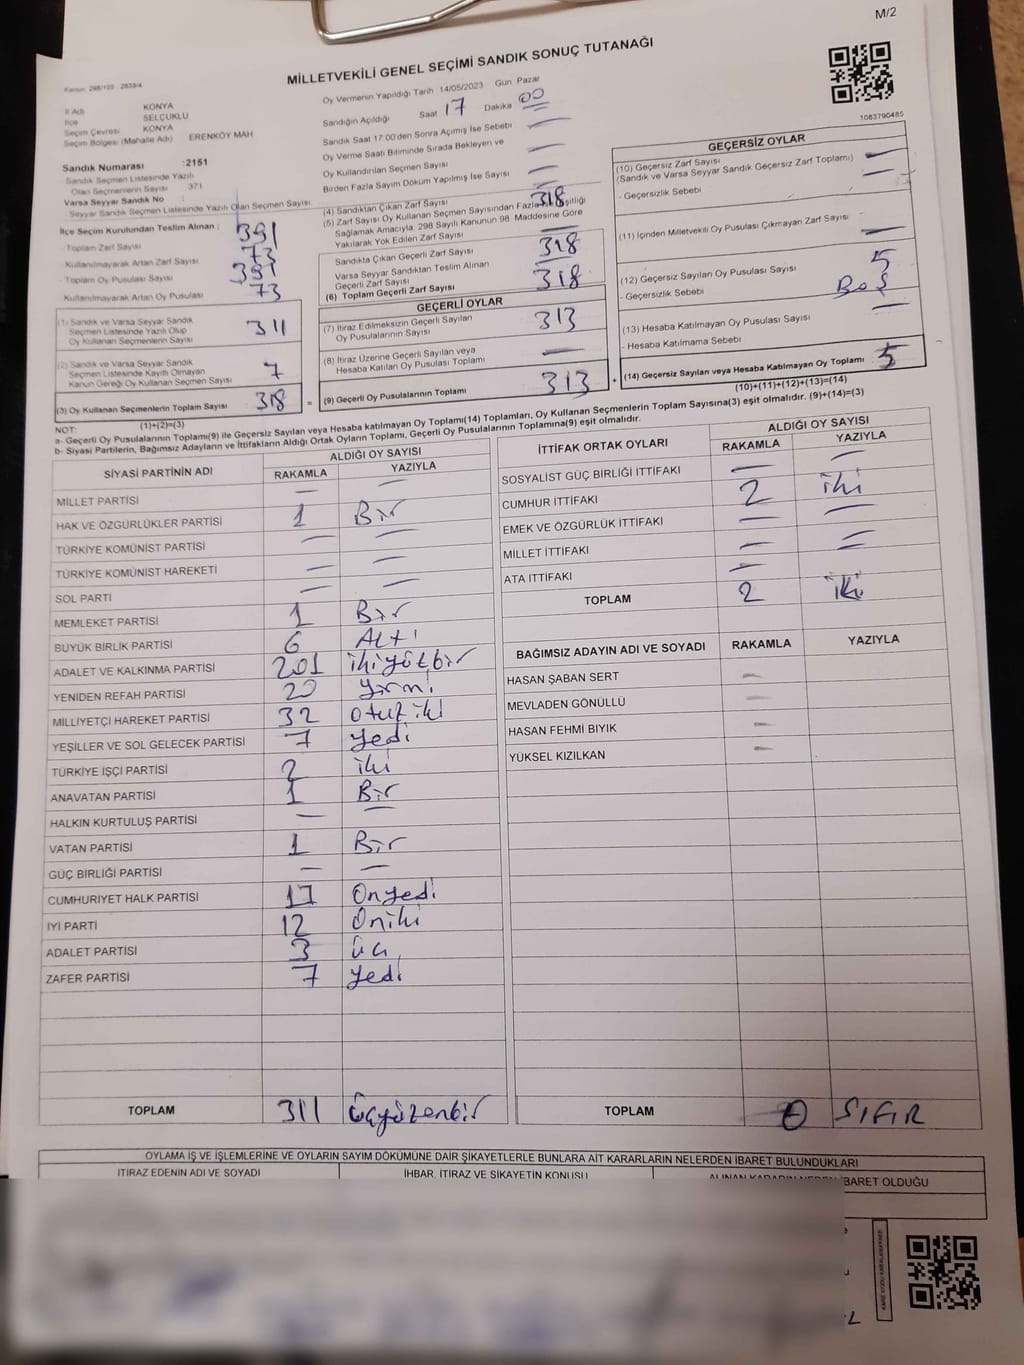 M/2
MİLLETVEKİLİ GENEL SEÇİMİ SANDIK SONUÇ TUTANAĞI
1083790485
İl Adı KONYA
İlçe SELÇUKLU
Seçim Çevresi KONYA
Seçim Bölgesi (Mahalle Adı) ERENKÖY MAH
Sandık Numarası :2151
Sandık Seçmen Listesinde Yazılı
Olan Seçmenlerin Sayısı 371
Varsa Seyyar Sandık No
- Seyyar Sandık Seçmen Listesinde Yazılı Olan Seçmen Sayısı
İlçe Seçim Kurulundan Teslim Alınan ;
- Toplam Zarf Sayısı 391
- Kullanılmayarak Artan Zarf Sayısı 73
- Toplam Oy Pusulası Sayısı 391
Kullanılmayarak Artan Oy Pusulası 73
(1) Sandık ve Varsa Seyyar Sandık
Seçmen Listesinde Yazılı Olup
Oy Kullanan Seçmenlerin Sayısı 311
(2) Sandık ve Varsa Seyyar Sandık
Seçmen Listesinde Kayıtlı Olmayan
Kanun Gereği Oy Kullanan Seçmen Sayısı 7
(3) Oy Kullanan Seçmenlerin Toplam Sayısı 318 =
(1)+(2)=(3)
Oy Vermenin Yapıldığı Tarih 14/05/2023 Gün Pazar
Sandığın Açıldığı Saat 17 Dakika 00
Sandık Saat 17:00'den Sonra Açılmış İse Sebebi —
Oy Verme Saati Bitiminde Sırada Bekleyen ve
Oy Kullandırılan Seçmen Sayısı —
Birden Fazla Sayım Döküm Yapılmış İse Sayısı —
(4) Sandıktan Çıkan Zarf Sayısı 318
(5) Zarf Sayısı Oy Kullanan Seçmen Sayısından Fazla İse Eşitliği
Sağlamak Amacıyla; 298 Sayılı Kanunun 98. Maddesine Göre
Yakılarak Yok Edilen Zarf Sayısı
Sandıkta Çıkan Geçerli Zarf Sayısı 318
Varsa Seyyar Sandıktan Teslim Alınan
Geçerli Zarf Sayısı
(6) Toplam Geçerli Zarf Sayısı 318
GEÇERLİ OYLAR
(7) İtiraz Edilmeksizin Geçerli Sayılan
Oy Pusulalarının Sayısı 313
(8) İtiraz Üzerine Geçerli Sayılan veya
Hesaba Katılan Oy Pusulası Toplamı —
(9) Geçerli Oy Pusulalarının Toplamı 313 +
GEÇERSİZ OYLAR
(10) Geçersiz Zarf Sayısı —
(Sandık ve Varsa Seyyar Sandık Geçersiz Zarf Toplamı) —
- Geçersizlik Sebebi
(11) İçinden Milletvekili Oy Pusulası Çıkmayan Zarf Sayısı —
(12) Geçersiz Sayılan Oy Pusulası Sayısı 5
- Geçersizlik Sebebi Boş
(13) Hesaba Katılmayan Oy Pusulası Sayısı —
- Hesaba Katılmama Sebebi
(14) Geçersiz Sayılan veya Hesaba Katılmayan Oy Toplamı 5
(10)+(11)+(12)+(13)=(14)
NOT:
a- Geçerli Oy Pusulalarının Toplamı(9) ile Geçersiz Sayılan veya Hesaba katılmayan Oy Toplamı(14) Toplamları, Oy Kullanan Seçmenlerin Toplam Sayısına(3) eşit olmalıdır. (9)+(14)=(3)
b- Siyasi Partilerin, Bağımsız Adayların ve İttifakların Aldığı Ortak Oyların Toplamı, Geçerli Oy Pusulalarının Toplamına(9) eşit olmalıdır.
SİYASİ PARTİNİN ADI ALDIĞI OY SAYISI
RAKAMLA YAZIYLA
MİLLET PARTİSİ — —
HAK VE ÖZGÜRLÜKLER PARTİSİ 1 Bir
TÜRKİYE KOMÜNİST PARTİSİ — —
TÜRKİYE KOMÜNİST HAREKETİ — —
SOL PARTİ — —
MEMLEKET PARTİSİ 1 Bir
BÜYÜK BİRLİK PARTİSİ 6 Altı
ADALET VE KALKINMA PARTİSİ 201 ikiyüzbir
YENİDEN REFAH PARTİSİ 20 yirmi
MİLLİYETÇİ HAREKET PARTİSİ 32 otuz iki
YEŞİLLER VE SOL GELECEK PARTİSİ 7 yedi
TÜRKİYE İŞÇİ PARTİSİ 2 iki
ANAVATAN PARTİSİ 1 Bir
HALKIN KURTULUŞ PARTİSİ — —
VATAN PARTİSİ 1 Bir
GÜÇ BİRLİĞİ PARTİSİ — —
CUMHURİYET HALK PARTİSİ 17 Onyedi
İYİ PARTİ 12 Oniki
ADALET PARTİSİ 3 üç
ZAFER PARTİSİ 7 yedi
TOPLAM 311 üçyüzonbir
İTTİFAK ORTAK OYLARI ALDIĞI OY SAYISI
RAKAMLA YAZIYLA
SOSYALİST GÜÇ BİRLİĞİ İTTİFAKI — —
CUMHUR İTTİFAKI 2 iki
EMEK VE ÖZGÜRLÜK İTTİFAKI — —
MİLLET İTTİFAKI — —
ATA İTTİFAKI — —
TOPLAM 2 iki
BAĞIMSIZ ADAYIN ADI VE SOYADI RAKAMLA YAZIYLA
HASAN ŞABAN SERT —
MEVLADEN GÖNÜLLÜ —
HASAN FEHMİ BIYIK —
YÜKSEL KIZILKAN —
TOPLAM 0 SIFIR
OYLAMA İŞ VE İŞLEMLERİNE VE OYLARIN SAYIM DÖKÜMÜNE DAİR ŞİKAYETLERLE BUNLARA AİT KARARLARIN NELERDEN İBARET BULUNDUKLARI
İTİRAZ EDENİN ADI VE SOYADI İHBAR, İTİRAZ VE ŞİKAYETİN KONUSU ALINAN KARARIN NEDEN İBARET OLDUĞU